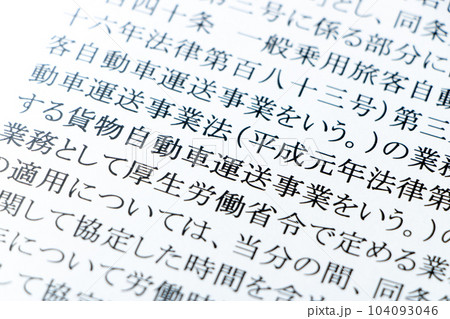 二号に係る部分に
百四十条　一般乗用旅客自動
十六年法律第百八十三号)第三
客自動車運送事業をいう。)の業務
動車運送事業法(平成元年法律第
する貨物自動車運送事業をいう。)の
業務として厚生労働省令で定める業
の適用については、当分の間、同条
関して協定した時間を含め
について労働時
して協定
104093046